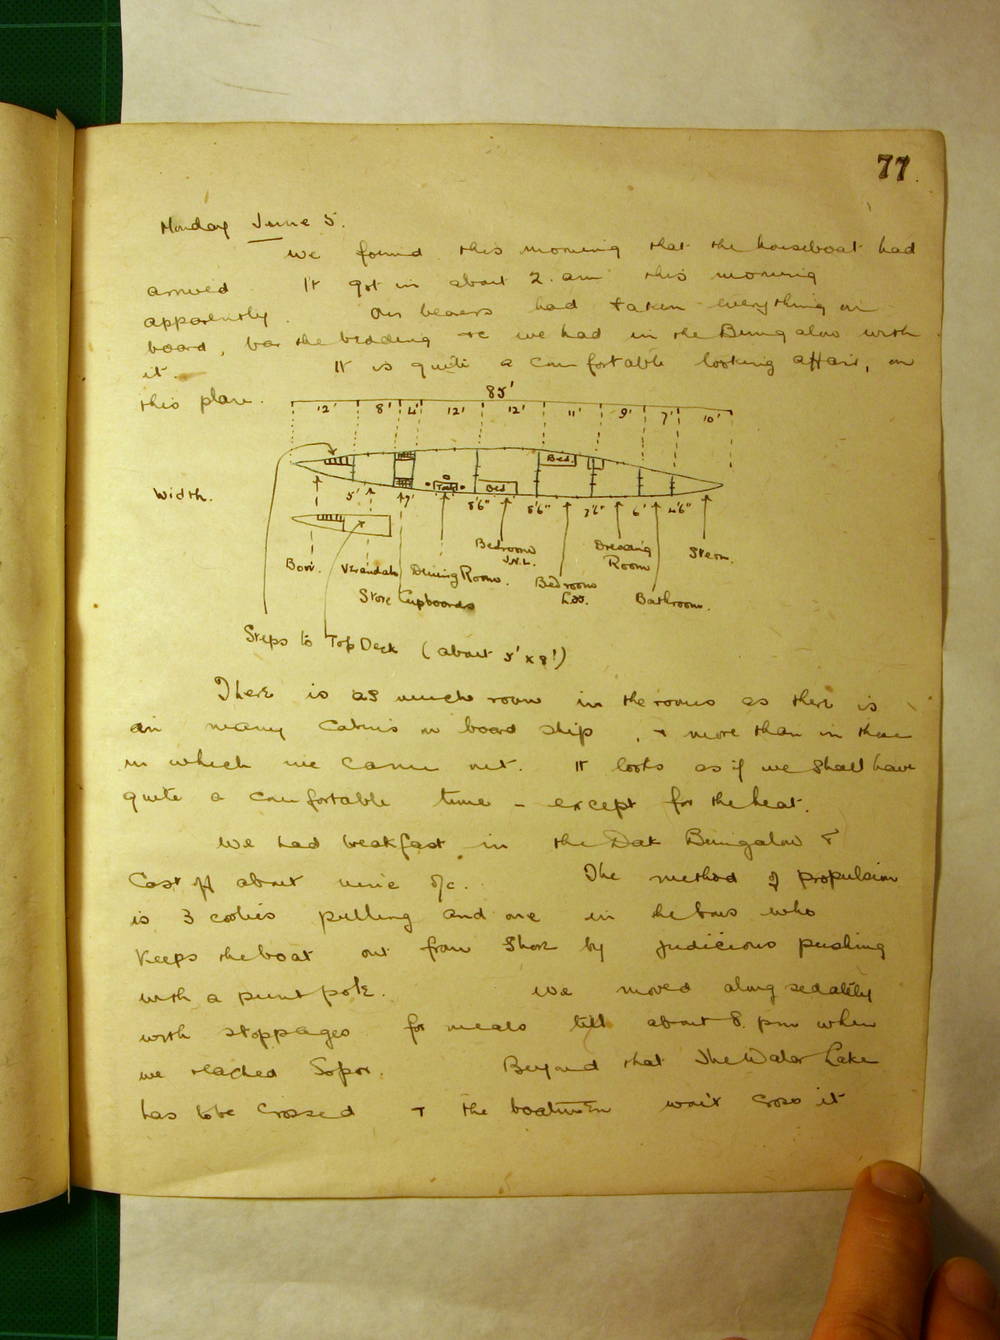 77
Monday June 5.
We found this morning that the houseboat had
arrived. It got in about 2. am this morning
apparently. Our bearers had taken everything on
board, bar the bedding &c we had in the Bungalow with
it. It is quite a comfortable looking affair, on
this plan.
85'
12' 8' 4' 12' 12' 11' 9' 7' 10'
Bed.
Table Bed
Width. 5' 7' 8'6" 8'6" 7'6" 6' 4'6"
Bow. Verandah Dining Room. Bedroom Bedroom Dressing Room Bathroom. Stern.
J.N.L.
Store Cupboards
Steps to Top Deck (about 5' x 8')
There is as much room in the rooms as there is
in many Cabins on board ship, & more than in that
in which we came out. It looks as if we shall have
quite a comfortable time – except for the heat.
We had breakfast in the Dak Bungalow &
Cast off about nine o/c. The method of propulsion
is 3 coolies pulling and one in the bows who
keeps the boat out from shore by judicious pushing
with a punt pole. We moved along sedately
with stoppages for meals till about 8. pm when
we reached Sopor. Beyond that the Walar Lake
has to be crossed & the boatmen won't cross it